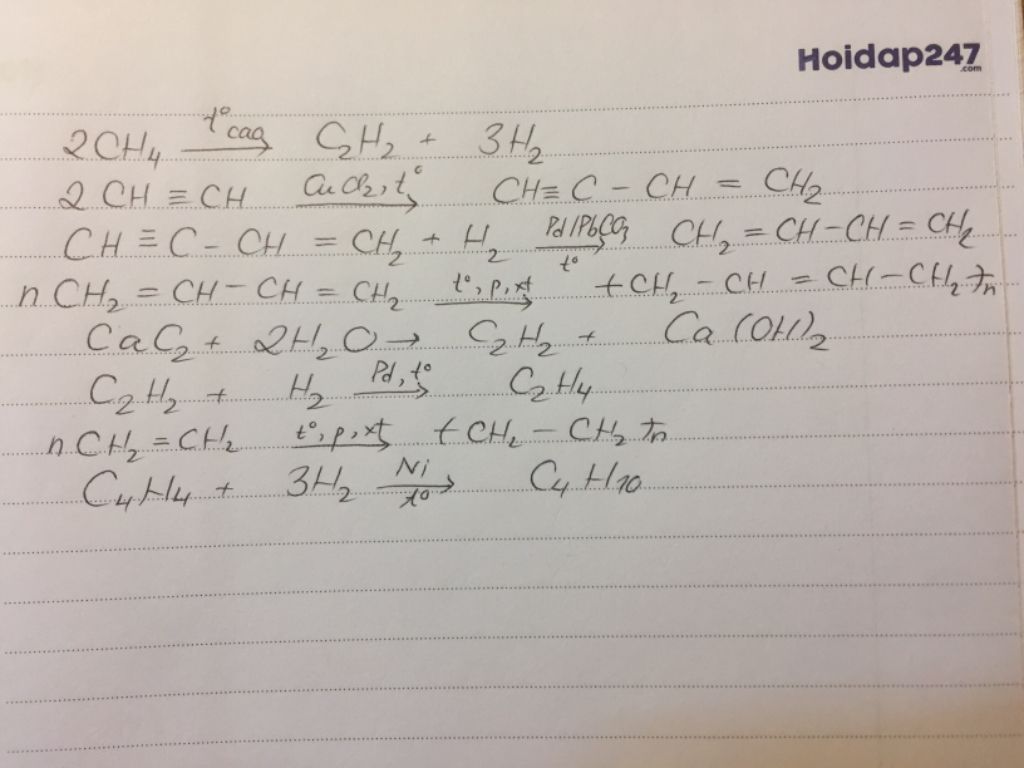 Hoidap247
.com
2CH₄ t° cao → C₂H₂ + 3H₂
2CH ≡ CH CuCl₂, t° → CH ≡ C - CH = CH₂
CH ≡ C - CH = CH₂ + H₂ Pd/PbCO₃ t° → CH₂ = CH - CH = CH₂
nCH₂ = CH - CH = CH₂ t°, p, xt → +CH₂ - CH = CH - CH₂+n
CaC₂ + 2H₂O → C₂H₂ + Ca(OH)₂
C₂H₂ + H₂ Pd, t° → C₂H₄
nCH₂ = CH₂ t°, p, xt → +CH₂ - CH₂+n
C₄H₄ + 3H₂ Ni t° → C₄H₁₀